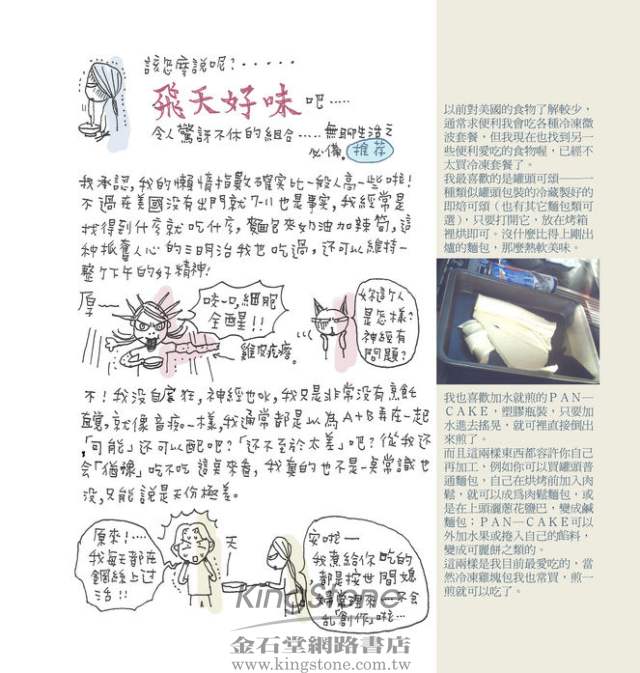 該怎麼說呢?‧‧‧‧‧
飛天好味吧‧‧‧‧
令人驚訝不休的組合‧‧‧‧無聊生活之
必備。推荐
我承認,我的懶惰指數確實比一般人高一些啦!
不過在美國沒有出門就7-11也是事實,我經常是
找得到什麼就吃什麼,麵包夾奶油加辣筍,這
種振奮人心的三明治我也吃過,還可以維持一
整个下午的好精神!
細胞
全醒!!
雞皮疙瘩。
妳這个人
是怎樣?
神經有
問題?
不!我沒自虐狂,神經也ok,我只是非常沒有烹飪
直覺,就像音痴一樣,我通常都是以為A+B弄在一起
「可能」還可以配吧?「還不至於太差」吧?從我还
我真的也不是一点常識也
沒,只能說是天份極差。
原來!‧‧‧
我每天都在
鋼絲上过
活!!
天
安啦—
我煮給你吃的
都是按世間媽
不会
亂「創作」啦‧‧‧
以前對美國的食物了解較少,
通常求便利我會吃各種冷凍微
波套餐,但我現在也找到另一
些便利愛吃的食物喔,已經不
太買冷凍套餐了。
我最喜歡的是罐頭可頌——一
種類似罐頭包裝的冷藏製好的
即焙可頌(也有其它麵包類可
選),只要打開它,放在烤箱
裡烘即可。沒什麼比得上剛出
爐的麵包,那麼熱軟美味。
我也喜歡加水就煎的PAN—
CAKE,塑膠瓶裝,只要加
水進去搖晃,就可裡直接倒出
來煎了。
而且這兩樣東西都容許你自己
再加工,例如你可以買罐頭普
通麵包,自己在烘烤前加入肉
鬆,就可以成為肉鬆麵包,或
是在上頭灑蔥花鹽巴,變成鹹
麵包;PAN—CAKE可以
外加水果或捲入自己的餡料,
變成可麗餅之類的。
這兩樣是我目前最愛吃的,當
然冷凍雞塊包我也常買,煎一
煎就可以吃了。
KingStone
金石堂網路書店
www.kingstone.com.tw